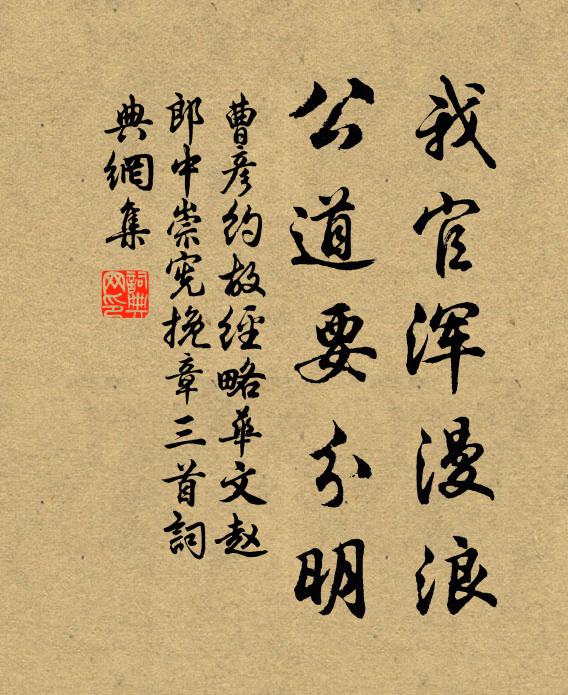 我官浑漫浪
公道要分明
曹彦约故經略華文赵
郎中崇宪挽章三首詞
典網集
詞典
网印